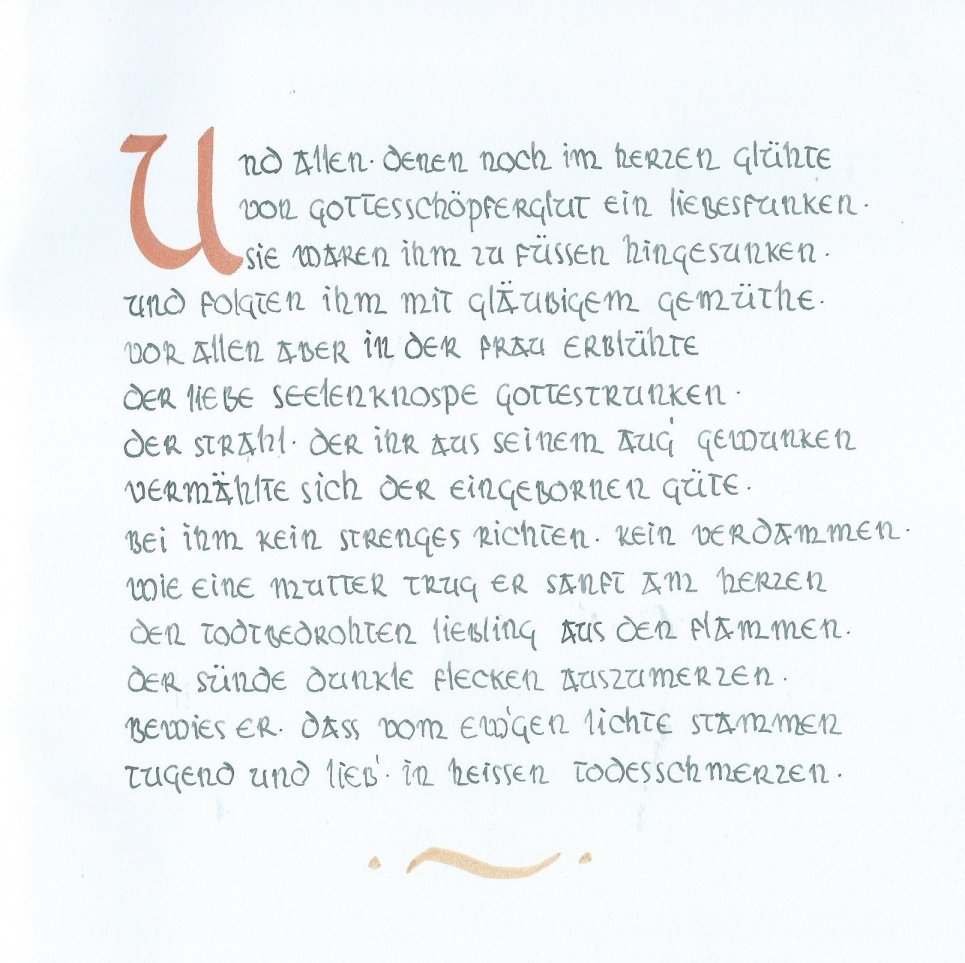 Und allen · denen noch im herzen glühte
von gottesschöpferglut ein liebesfunken ·
sie waren ihm zu füssen hingesunken ·
und folgten ihm mit gläubigem gemüthe ·
vor allen aber in der frau erblühte
der liebe seelenknospe gottestrunken ·
der strahl · der ihr aus seinem aug' gewunken
vermählte sich der eingebornen güte ·
bei ihm kein strenges richten · kein verdammen ·
wie eine mutter trug er sanft am herzen
den todtbedrohten liebling aus den flammen ·
der sünde dunkle flecken auszumerzen ·
bewies er · dass vom ew'gen lichte stammen
tugend und lieb' · in heissen todesschmerzen ·